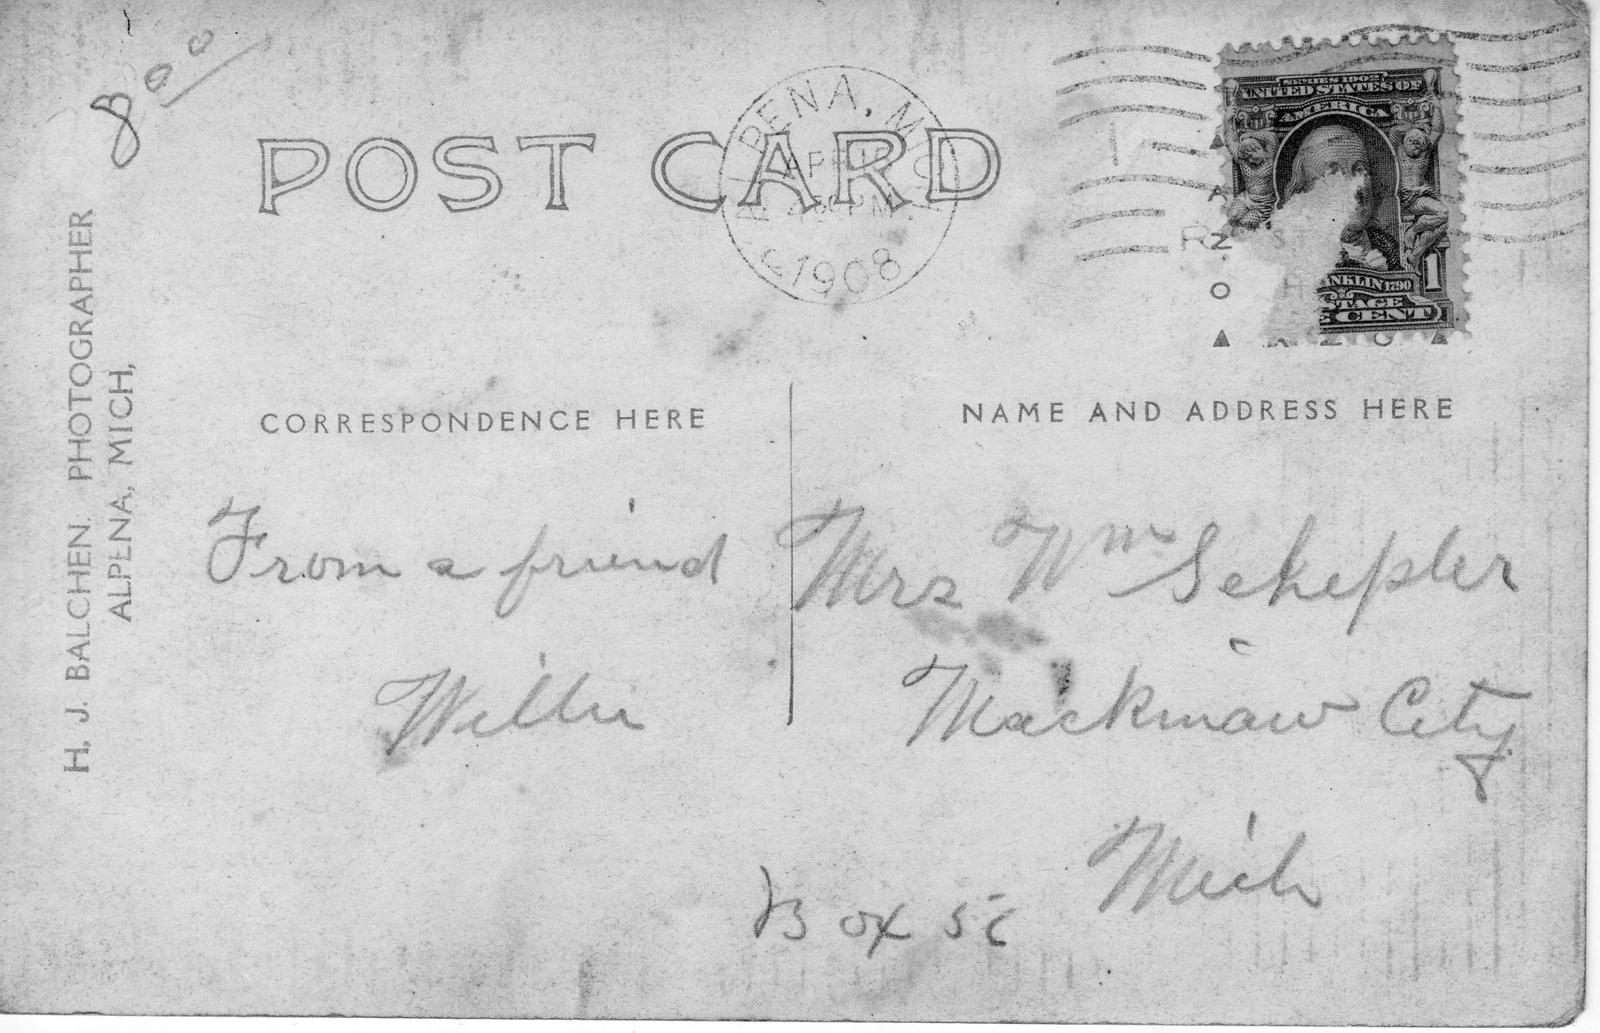 8 00
POST CARD
ALPENA, MICH.
APR
PM
1908
SERIES 1902
UNITED STATES OF
AMERICA
1
ANKLIN 1790
STAGE
E CENT
A
N
O
H. J. BALCHEN. PHOTOGRAPHER
ALPENA, MICH,
CORRESPONDENCE HERE
NAME AND ADDRESS HERE
From a friend
Willie
Mrs Wm Schepler
Mackinaw City
Mich
Box 56